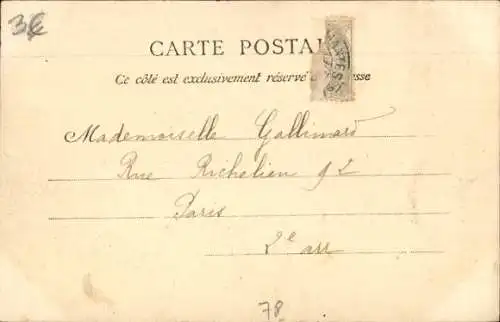 3€
CARTE POSTA
Ce côté est exclusivement réservé à asse
Mademoiselle Gallimard
Rue Richelieu 92
Paris
2e arr
78